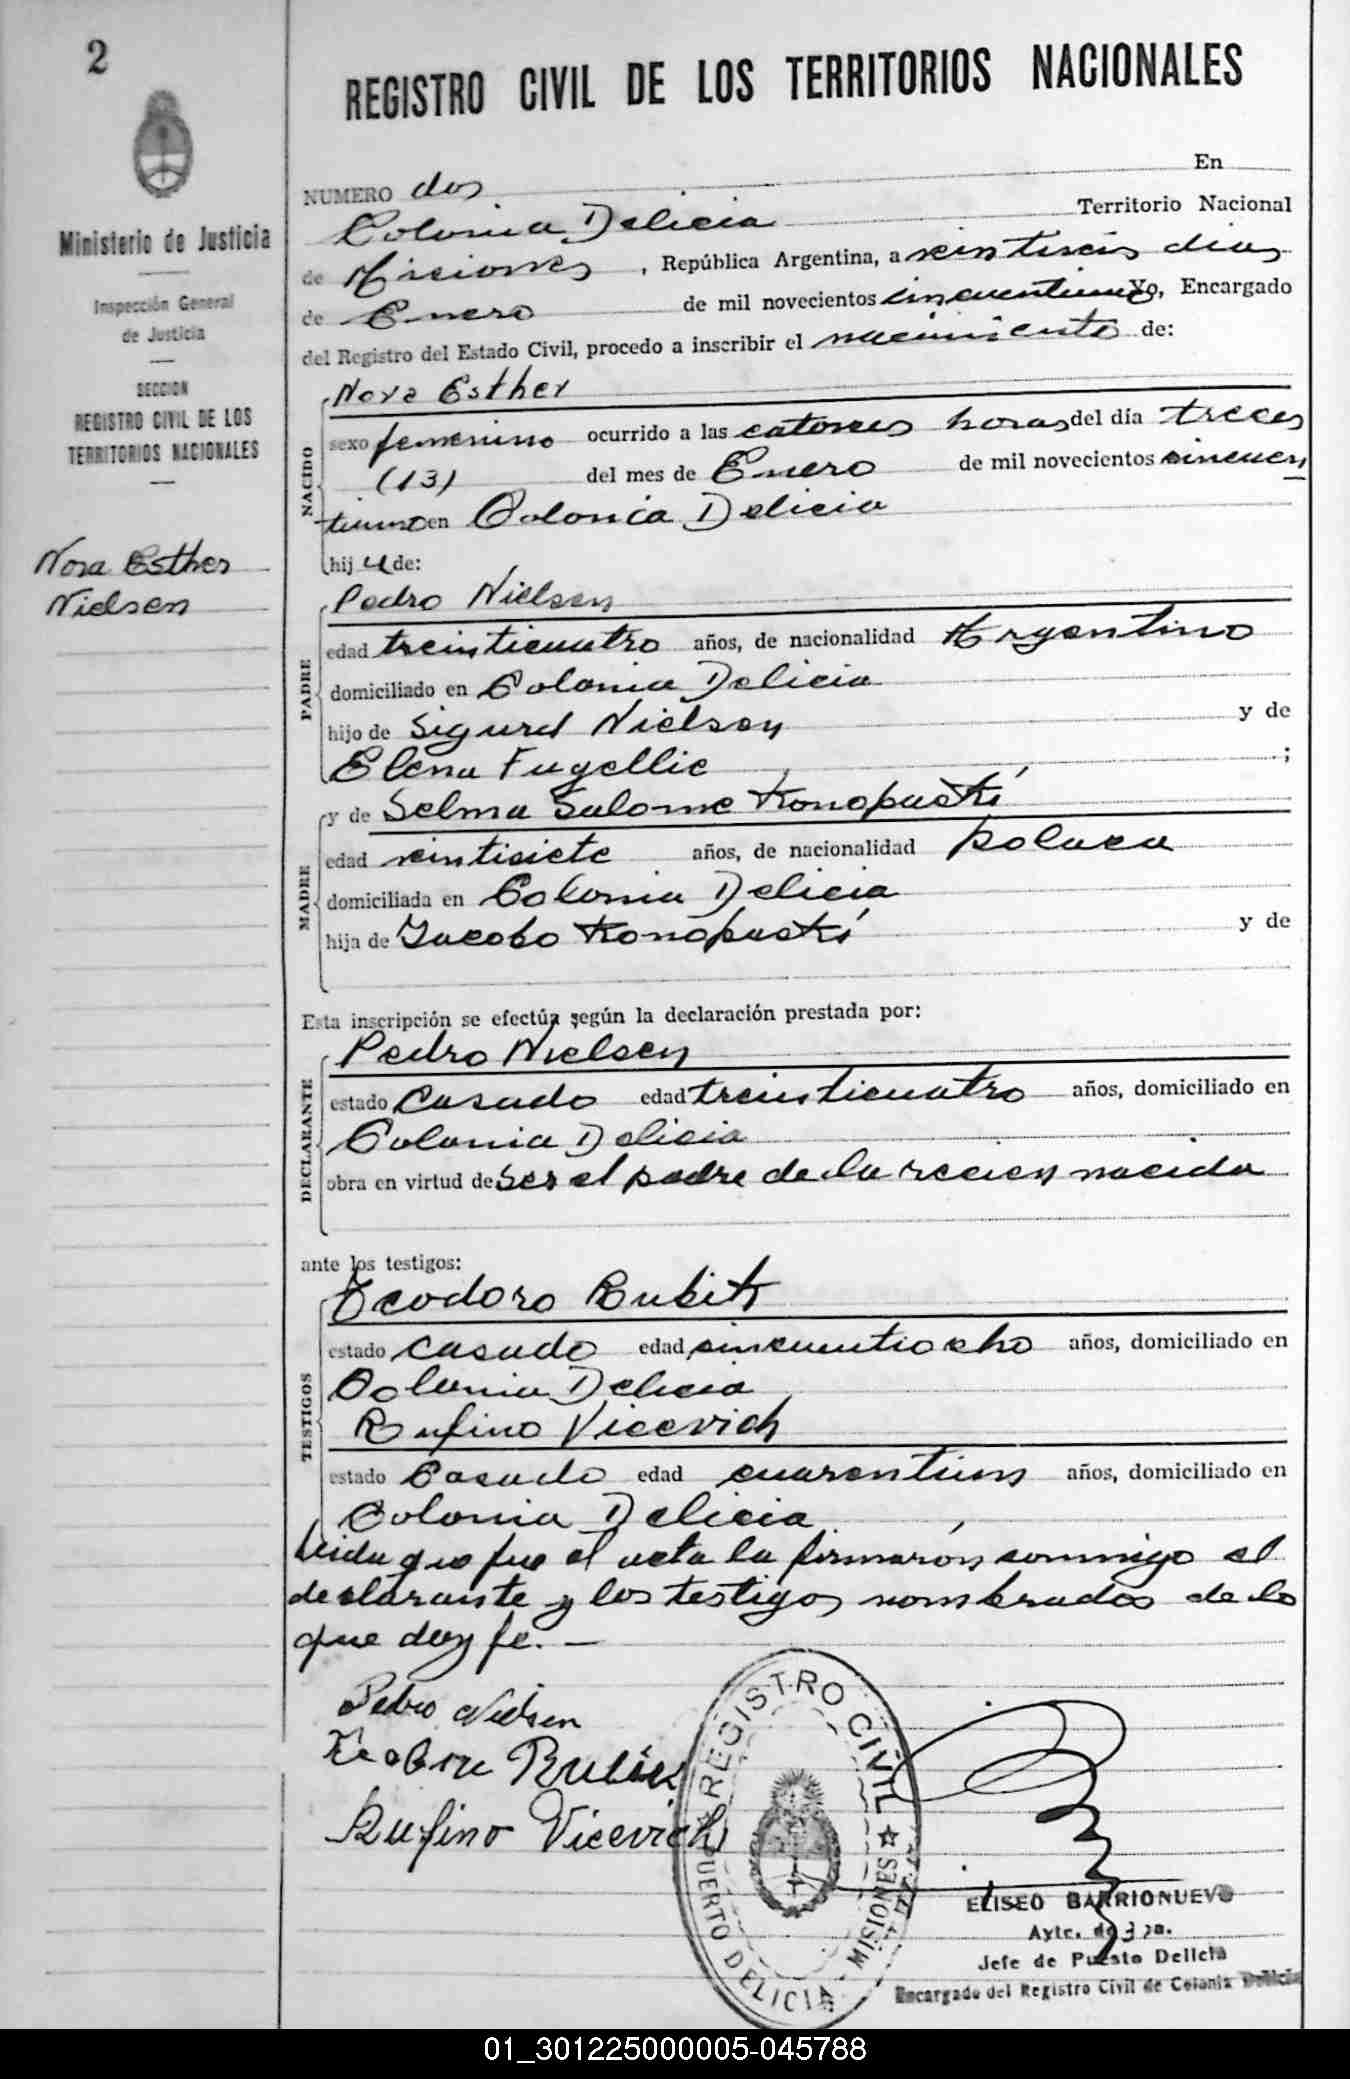 2
Ministerio de Justicia
Inspección General
de Justicia
SECCION
REGISTRO CIVIL DE LOS
TERRITORIOS NACIONALES
Nora Esther
Nielsen
REGISTRO CIVIL DE LOS TERRITORIOS NACIONALES
NUMERO dos En
Colonia Delicia Territorio Nacional
de Misiones, República Argentina, a veintiseis dias
de Enero de mil novecientos sincuentiuno Yo, Encargado
del Registro del Estado Civil, procedo a inscribir el nacimiento de:
NACIDO
Nora Esther
sexo femenino ocurrido a las catorces horas del día treces
(13) del mes de Enero de mil novecientos sincuen
tiuno en Colonia Delicia
hij a de:
PADRE
Pedro Nielsen
edad treinticuatro años, de nacionalidad Argentino
domiciliado en Colonia Delicia
hijo de Sigurd Nielsen y de
Elena Fugellie ;
MADRE
y de Selma Salome Konopaski
edad veintisiete años, de nacionalidad polaca
domiciliada en Colonia Delicia
hija de Jacobo Konopaski y de
Esta inscripción se efectúa según la declaración prestada por:
DECLARANTE
Pedro Nielsen
estado Casado edad treinticuatro años, domiciliado en
Colonia Delicia
obra en virtud de ser el padre de la recien nacida
ante los testigos:
TESTIGOS
Teodoro Rubik
estado Casado edad sincuentiocho años, domiciliado en
Colonia Delicia
Rufino Vicevich
estado Casado edad cuarentiun años, domiciliado en
Colonia Delicia
Leida que fue el acta la firmarón conmigo el
declarante y los testigos nombrados de lo
que doy fe. —
Pedro Nielsen
Rufino Vicevich
REGISTRO CIVIL
PUERTO DELICIA - MISIONES
ELISEO BARRIONUEVO
Ayte. de
Jefe de Puesto Delicia
Encargado del Registro Civil de Colonia Delicia
01_301225000005-045788